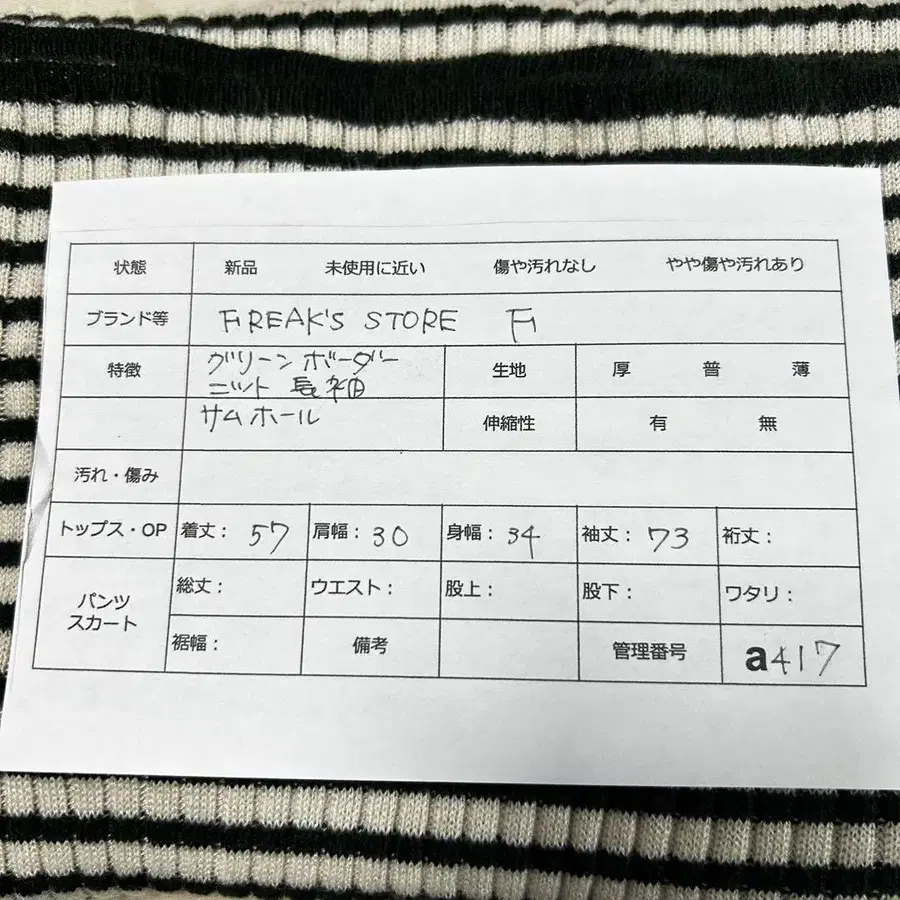 状態 新品 未使用に近い 傷や汚れなし やや傷や汚れあり
ブランド等 FREAK'S STORE F
特徴 グリーンボーダー 生地 厚 普 薄
ニット 長袖
サムホール 伸縮性 有 無
汚れ・傷み
トップス・OP 着丈: 57 肩幅: 30 身幅: 34 袖丈: 73 裄丈:
パンツ 総丈: ウエスト: 股上: 股下: ワタリ:
スカート
裾幅: 備考 管理番号 a417